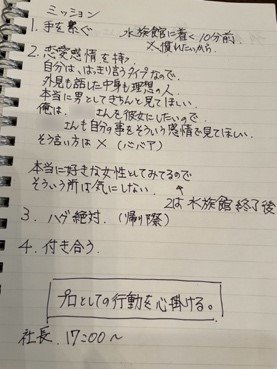 ミッション
1. 手を繋ぐ 水族館に着く10分前
×慣れたいから
2. 恋愛感情を持つ
自分は、はっきり言うタイプなので、
外見も話した中身も理想の人。
本当に男としてきちんと見てほしい。
俺は、 さんを彼女にしたいので
さんも自分の事をそういう感情で見てほしい。
そう言い方は×
本当に好きな女性としてみてるので
そういう所は気にしない。
2は水族館終了後
3. ハグ絶対.(帰り際)
4. 付き合う.
プロとしての行動を心掛ける。
社長. 17:00〜